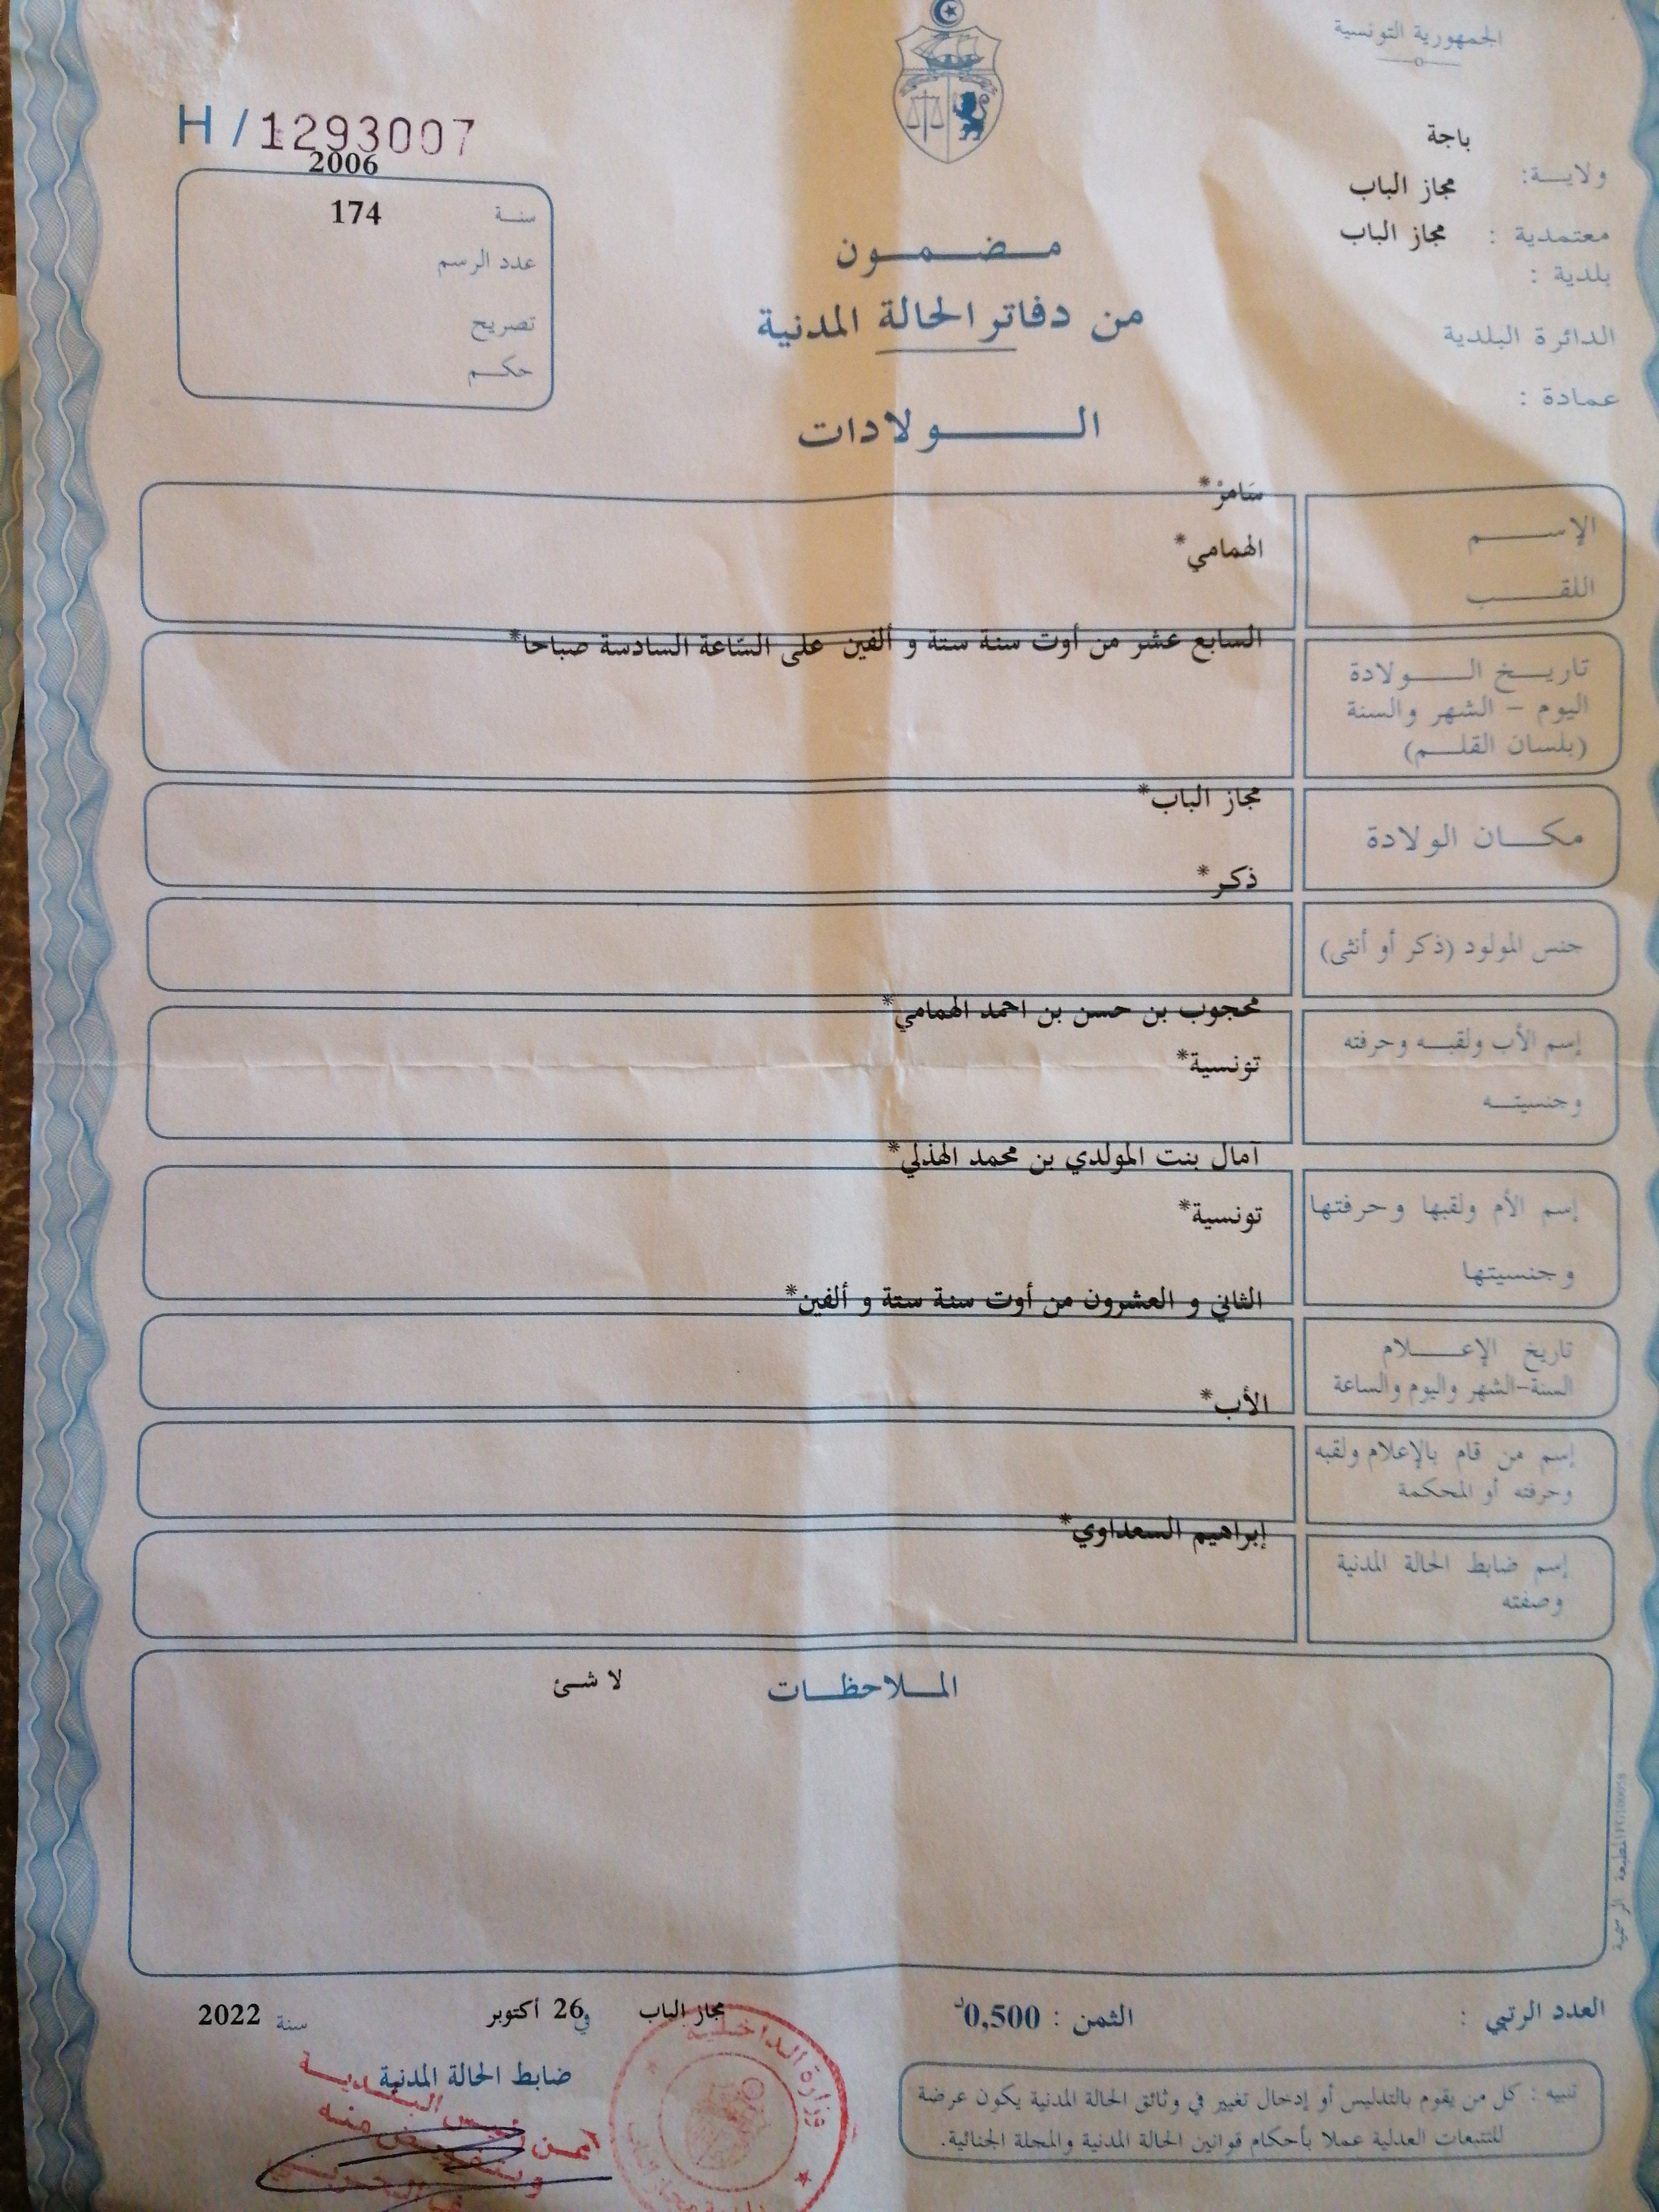 الجمهورية التونسية
باجة
ولايـــة:
مجاز الباب
معتمدية :
مجاز الباب
بلدية :
الدائرة البلدية
عمادة :
H / 1293007
2006
سنــة
174
عدد الرسم
تصريح
حكــم
مــضــمــون
من دفاتر الحالة المدنية
الــــولادات
سَامرْ*
الإســــم
الهمامي*
اللقــــب
السابع عشر من أوت سنة ستة و ألفين على السّاعة السادسة صباحا*
تاريــخ الــــولادة
اليوم – الشهر والسنة
(بلسان القلــم)
مجاز الباب*
مكــان الولادة
ذكر*
جنس المولود (ذكر أو أنثى)
محجوب بن حسن بن احمد الهمامي*
إسم الأب ولقبــه وحرفته
تونسية*
وجنسيتــه
آمال بنت المولدي بن محمد الهذلي*
إسم الأم ولقبها وحرفتها
تونسية*
وجنسيتها
الثاني و العشرون من أوت سنة ستة و ألفين*
تاريخ الإعــــلام
السنة-الشهر واليوم والساعة
الأب*
إسم من قام بالإعلام ولقبه
وحرفته أو المحكمة
إبراهيم السعداوي*
إسم ضابط الحالة المدنية
وصفته
المــلاحظــات
لا شئ
المطبعة الرسمية
العدد الرتبي :
الثمن : 0,500د
مجاز الباب
في 26 أكتوبر
سنة 2022
ضابط الحالة المدنية
وزارة الداخلية
تنبيه : كل من يقوم بالتدليس أو إدخال تغيير في وثائق الحالة المدنية يكون عرضة
للتتبعات العدلية عملا بأحكام قوانين الحالة المدنية والمجلة الجنائية.